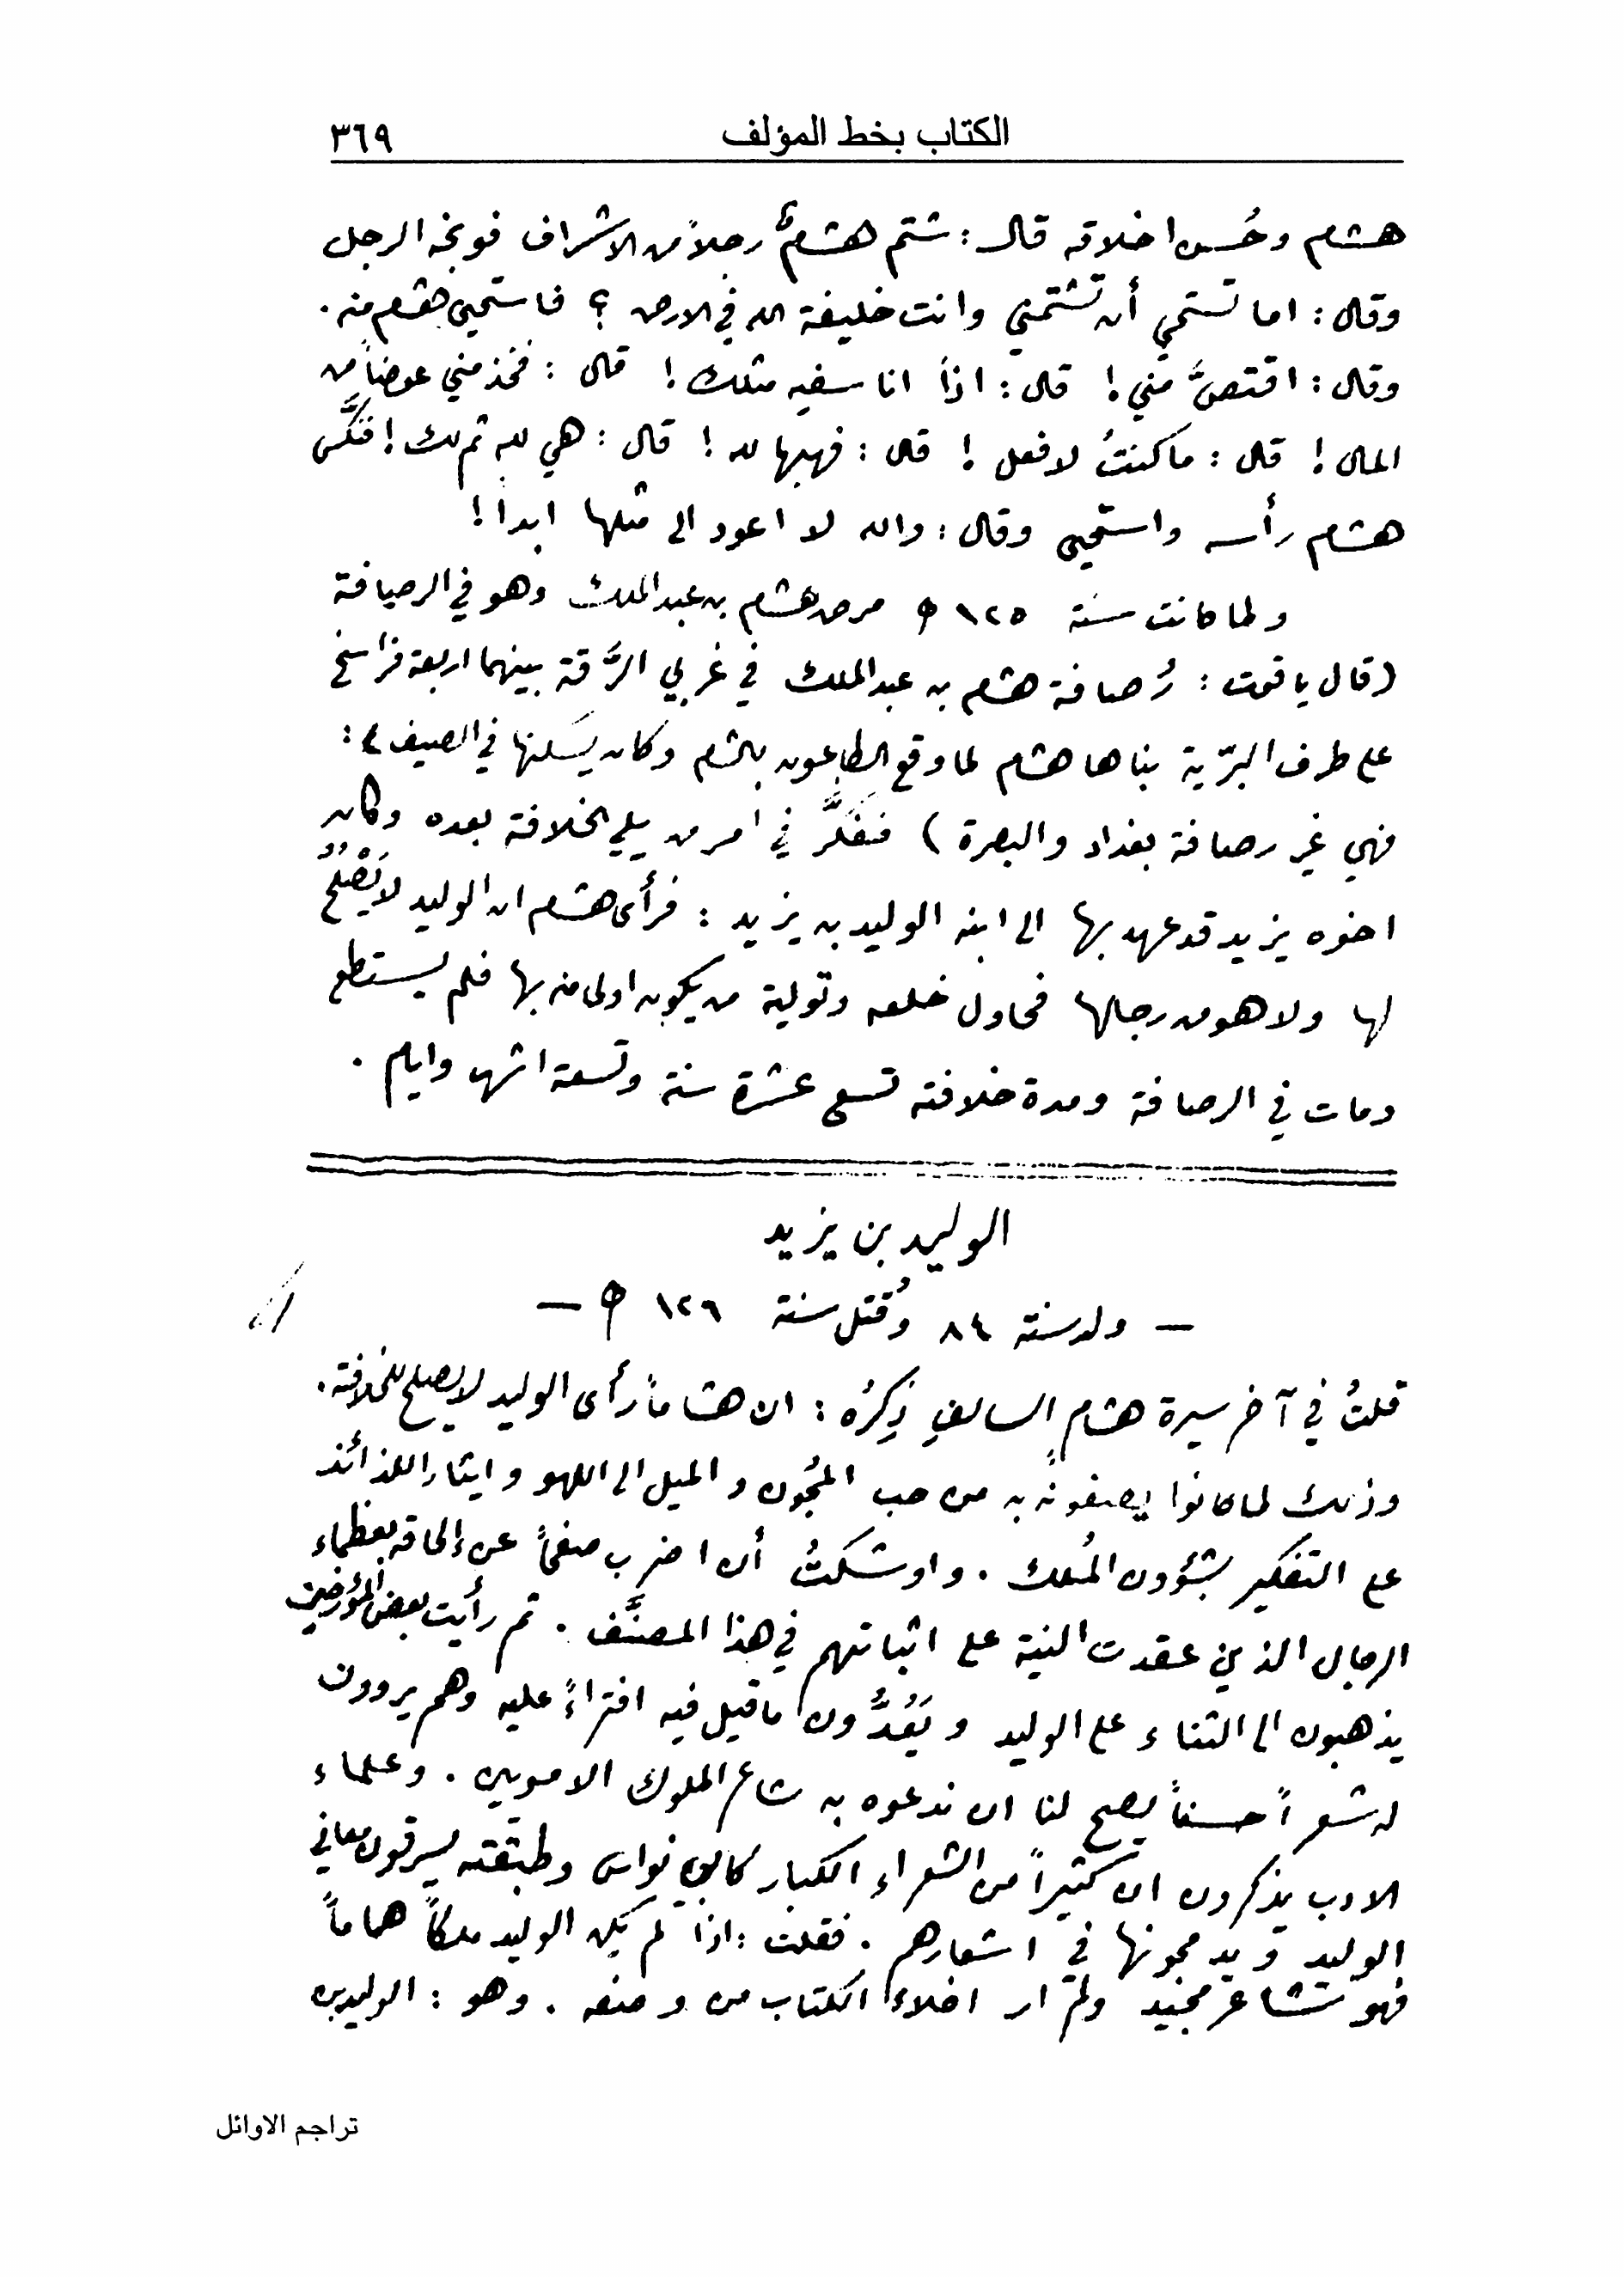 الكتاب بخط المؤلف ٣٦٩
هشام وحُسن اخلاقه قال : شتم هشامٌ رجلاً من الاشراف فوبخه الرجل
وقال : اما تستحي أن تشتمني وانت خليفة الله في الارض ؟ فاستحيى هشام منه .
وقال : اقتصَّ مني ! قال : اذاً انا سفيه مثلك ! قال : فخذ مني عوضاً من
المال ! قال : ما كنتُ لافعل ! قال : فهبها لله ! قال : هي لله ثم لك ! فنكَّس
هشام رأسه واستحيى وقال : والله لا اعود الى مثلها ابداً !
ولما كانت سنة ١٢٥ ه مرض هشام بن عبد الملك وهو في الرصافة
(قال ياقوت : رُصافة هشام بن عبد الملك في غربي الرَّقة بينهما اربعة فراسخ
على طرف البرّية بناها هشام لما وقع الطاعون بالشام وكان يسكنها في الصيف :
فهي غير رصافة بغداد والبصرة ) ففَكَّرَ في امر من يلي الخلافة بعده وكان
اخوه يزيد قد عهد بها الى ابنه الوليد بن يزيد : فرأى هشام ان الوليد لا يَصْلُحُ
لها ولا هو من رجالها فحاول خلعه وتولية من يكون اولى منه بها فلم يستطع
ومات في الرصافة ومدة خلافته تسع عشرة سنة وتسعة اشهر وايام .
الوليد بن يزيد
— ولد سنة ٨٤ وقُتل سنة ١٢٦ ه —
قلتُ في آخر سيرة هشام السالفِ ذِكرُه : ان هشاماً رأى الوليد لا يصلح للخلافة .
وذلك لما كانوا يصفونه به من حب المجُون والميل الى اللهو وايثار اللذائذ
على التفكير بشؤون المُلك . واوشكتُ أن اضرب صفحاً عن إلحاقه بعظماء
الرجال الذين عقدت النية على اثباتهم في هذا المصنَّف . ثم رأيت بعض المؤرخين
يذهبون الى الثناء على الوليد ويَعُدُّون ما قيل فيه افتراءً عليه وهم يروون
له شعراً حسناً يصح لنا ان ندعوه به شاعر الملوك الامويين . وعلماء
الادب يذكرون ان كثيراً من الشعراء الكبار كابي نواس وطبقته يسرقون معاني
الوليد ويدمجونها في اشعارهم . فقلت : اذا لم يكن الوليد ملكاً هماماً
فهو شاعر مجيد ولم ار اخلاء الكتاب من وصفه . وهو : الوليد بن
تراجم الاوائل